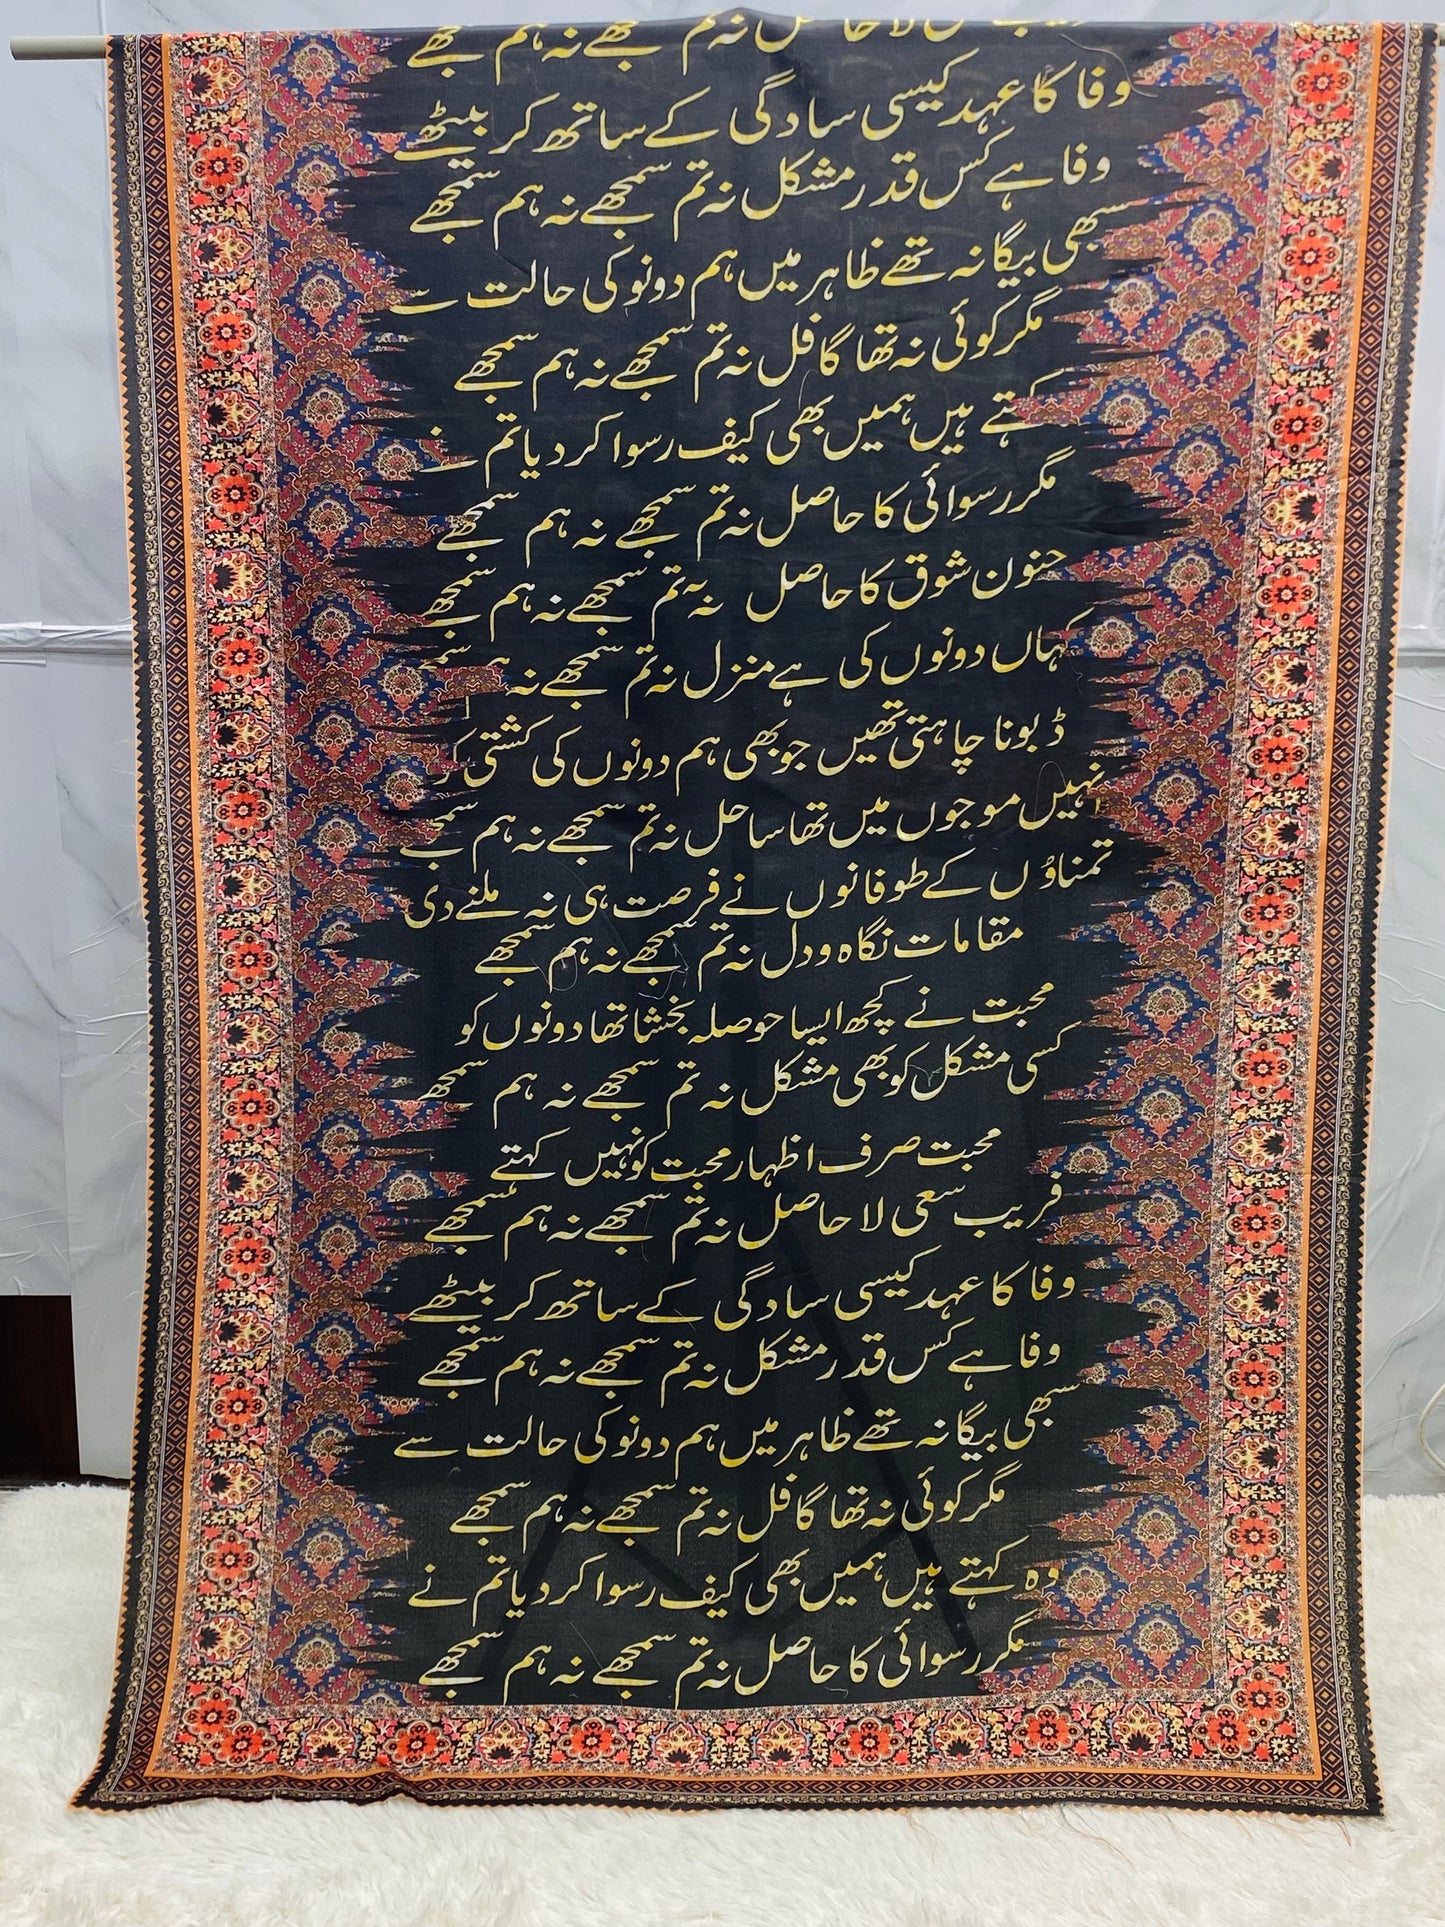 لا حاصل نہ تم سمجھے نہ ہم سمجھے
وفا کا عہد کیسی سادگی کے ساتھ کر بیٹھے
وفا ہے کس قدر مشکل نہ تم سمجھے نہ ہم سمجھے
سبھی بیگانہ تھے ظاہر میں ہم دونو کی حالت سے
مگر کوئی نہ تھا گافل نہ تم سمجھے نہ ہم سمجھے
کہتے ہیں ہمیں بھی کیف رسوا کر دیا تم نے
مگر رسوائی کا حاصل نہ تم سمجھے نہ ہم سمجھے
جنون شوق کا حاصل نہ تم سمجھے نہ ہم سمجھے
کہاں دونوں کی ہے منزل نہ تم سمجھے نہ
ڈبونا چاہتی تھیں جو بھی ہم دونوں کی کشتی
نہیں موجوں میں تھا ساحل نہ تم سمجھے نہ ہم سمجھے
تمناوُں کے طوفانوں نے فرصت ہی نہ ملنے دی
مقامات نگاہ و دل نہ تم سمجھے نہ ہم سمجھے
محبت نے کچھ ایسا حوصلہ بخشا تھا دونوں کو
کسی مشکل کو بھی مشکل نہ تم سمجھے نہ ہم سمجھے
محبت صرف اظہار محبت کو نہیں کہتے
فریب سعی لا حاصل نہ تم سمجھے نہ ہم سمجھے
وفا کا عہد کیسی سادگی کے ساتھ کر بیٹھے
وفا ہے کس قدر مشکل نہ تم سمجھے نہ ہم سمجھے
سبھی بیگانہ تھے ظاہر میں ہم دونو کی حالت سے
مگر کوئی نہ تھا گافل نہ تم سمجھے نہ ہم سمجھے
وہ کہتے ہیں ہمیں بھی کیف رسوا کر دیا تم نے
مگر رسوائی کا حاصل نہ تم سمجھے نہ ہم سمجھے